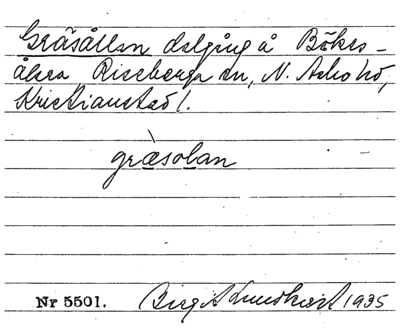 Gräsållan dalgång å Bökes-
åkra, Riseberga sn, N. Åsbo hd,
Kristianstad l.
græsolan
Nr 5501. Birgit Lundkvist 1935